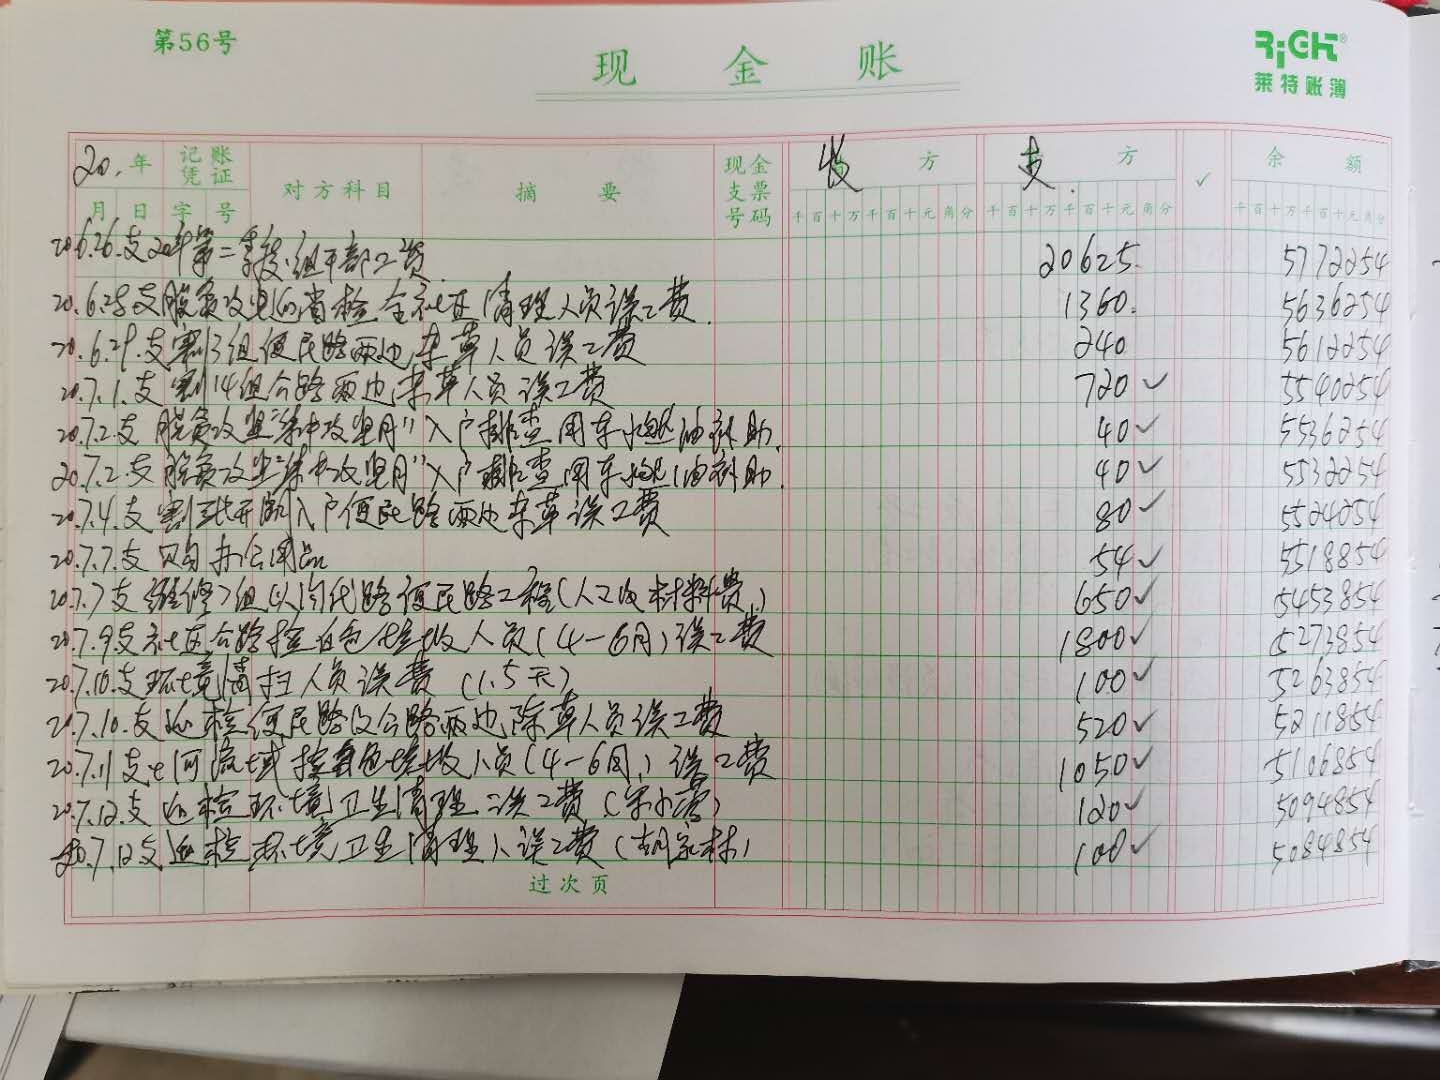 第56号
现 金 账
RiGHT®
莱特账簿
20.年 记账凭证 对方科目 摘 要 现金支票号码 收方 支方 ✓ 余 额
月 日 字 号 千百十万千百十元角分 千百十万千百十元角分 千百十万千百十元角分
20.6.26.支20年第二季度.组干部工资. 20625. 5772254
20.6.28支脱贫攻坚 全社区清理人员误工费. 1360. 5636254
20.6.29.支割3组便民路两边杂草人员误工费 240 5612254
20.7.1.支割14组公路两边杂草人员误工费 720✓ 5540254
20.7.2.支脱贫攻坚"集中攻坚月"入户排查用车燃油补助. 40✓ 5536254
20.7.2.支脱贫攻坚"集中攻坚月"入户排查用车燃油补助. 40✓ 5532254
20.7.4.支割 入户便民路两边杂草误工费 80✓ 5524254
20.7.7.支购办公用品 54✓ 5518854
20.7.7支维修7组 便民路工程(人工及材料费) 650✓ 5453854
20.7.9支社区公路捡白色垃圾人员(4-6月)误工费 1800✓ 5273854
20.7.10.支环境清扫人员误费(1.5天) 100✓ 5263854
20.7.10.支巡检便民路及公路两边除草人员误工费 520✓ 5211854
20.7.11支七河流域捡白色垃圾人员(4-6月)误工费 1050✓ 5106854
20.7.12.支巡检环境卫生清理误工费( ) 120✓ 5094854
20.7.12支巡检环境卫生清理人误工费(胡家林) 100✓ 5084854
过次页